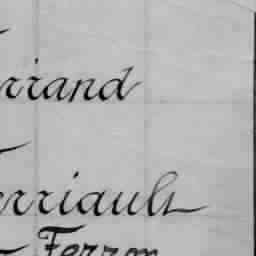 rriand
erriault
Ferron